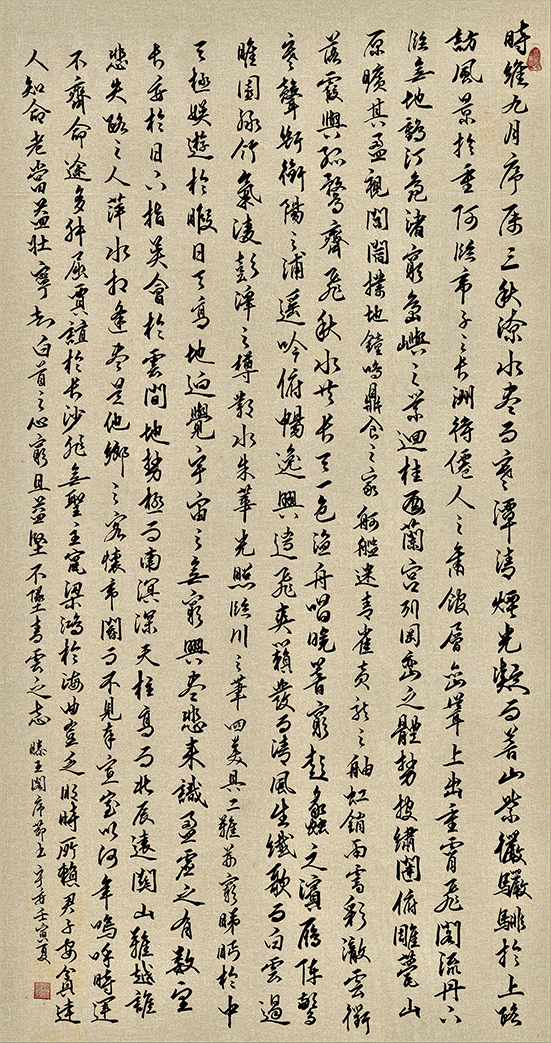 時維九月序屬三秋潦水盡而寒潭清煙光凝而暮山紫儼驂騑於上路
訪風景於重阿臨帝子之長洲得僊人之舊館層巒聳上出重霄飛閣流丹下
臨無地鶴汀鳧渚窮島嶼之縈迴桂殿蘭宮列岡巒之體勢披繡闥俯雕甍山
原曠其盈視閭閻撲地鐘鳴鼎食之家舸艦迷青雀黃龍之舳虹銷雨霽彩徹雲衢
落霞與孤鶩齊飛秋水共長天一色漁舟唱晚響窮彭蠡之濱雁陣驚
寒聲斷衡陽之浦遙吟俯暢逸興遄飛爽籟發而清風生纖歌而白雲遏
睢園綠竹氣凌彭澤之樽鄴水朱華光照臨川之筆四美具二難並窮睇眄於中
天極娛遊於暇日天高地迥覺宇宙之無窮興盡悲來識盈虛之有數望
長安於日下指吳會於雲間地勢極而南溟深天柱高而北辰遠關山難越誰
悲失路之人萍水相逢盡是他鄉之客懷帝閽而不見奉宣室以何年嗚呼時運
不齊命途多舛屈賈誼於長沙非無聖主竄梁鴻於海曲豈乏明時所賴君子安貧達
人知命老當益壯寧知白首之心窮且益堅不墜青雲之志 滕王閣序節 壬寅夏